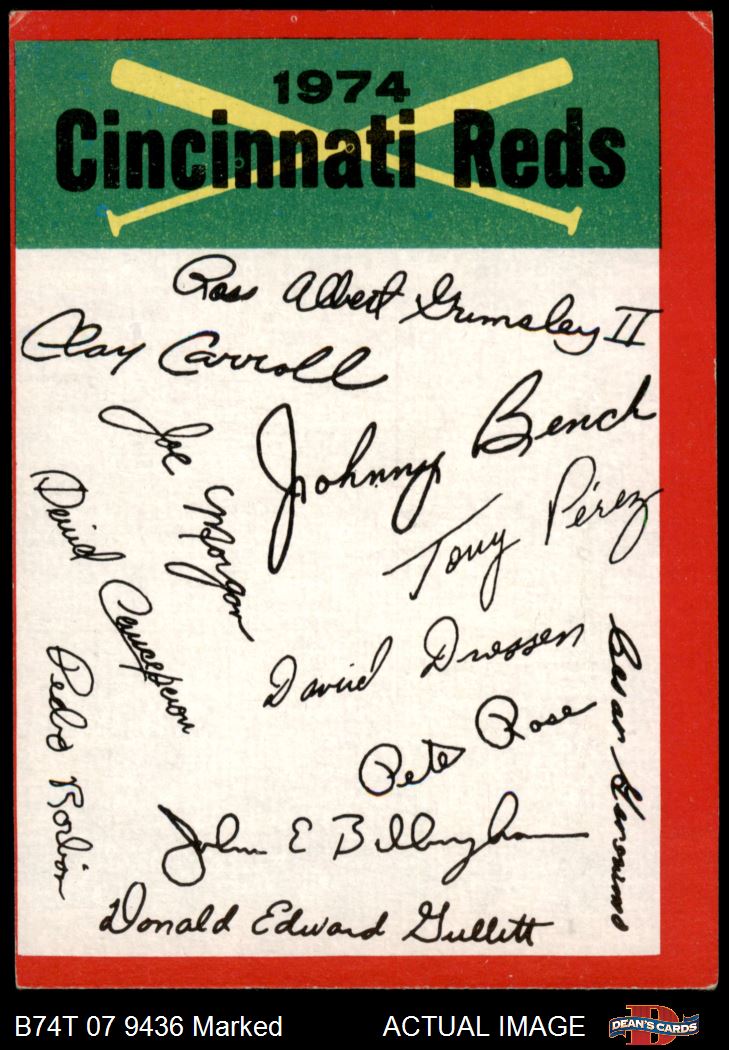 1974
Cincinnati Reds
Ross Albert Grimsley II
Clay Carroll
Johnny Bench
Joe Morgan
Tony Pérez
David Concepcion
David Driessen
Cesar Geronimo
Pedro Borbón
Pete Rose
John E Billingham
Donald Edward Gullett
B74T 07 9436 Marked
ACTUAL IMAGE
DEAN'S CARDS